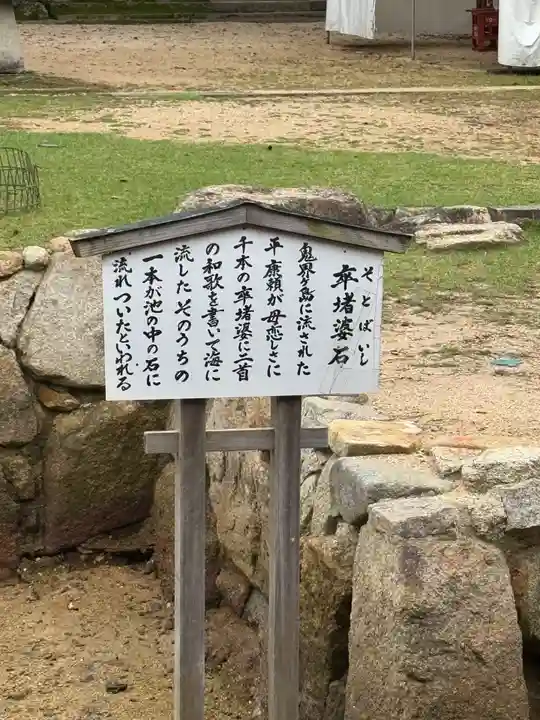 そとばいし
卒堵婆石
鬼界ヶ島に流された
平康頼が母恋しさに
千本の卒堵婆に二首
の和歌を書いて海に
流したそのうちの
一本が池の中の石に
流れついたといわれる